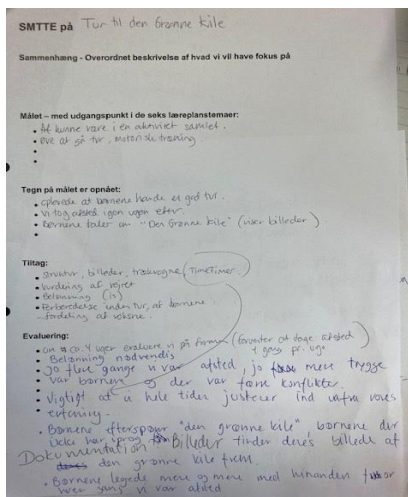 SMTTE på Tur til den Grønne Kile
Sammenhæng - Overordnet beskrivelse af hvad vi vil have fokus på
Målet – med udgangspunkt i de seks læreplanstemaer:
• At kunne være i én aktivitet samlet.
• Øve at gå tur, motorisk træning
•
•
Tegn på målet er opnået:
• oplevede at børnene havde en god tur.
• Vi tog afsted igen ugen efter.
• Børnene taler om "Den Grønne kile" (viser billeder)
•
Tiltag:
• Struktur, billeder, trækvogne (TimeTimer)
• Vurdering af vejret
• Belønning (is)
• Forberedelse inden tur, af børnene
- fordeling af voksne.
Evaluering:
• Om ca. 4 uger evaluere vi på formen (forventer at tage afsted
4 gang pr. uge)
• Belønning nødvendig
• Jo flere gange vi var afsted, jo mere trygge
var børnene og der var færre konflikter.
• Vigtigt at vi hele tiden justerer ind udfra vores
erfaring.
• Børnene efterspørger "den grønne kile", børnene der
ikke har sprog Billeder finder deres billede af
Dokumentation
den grønne kile frem.
• Børnene legede mere og mere med hinanden for
hver gang vi var afsted